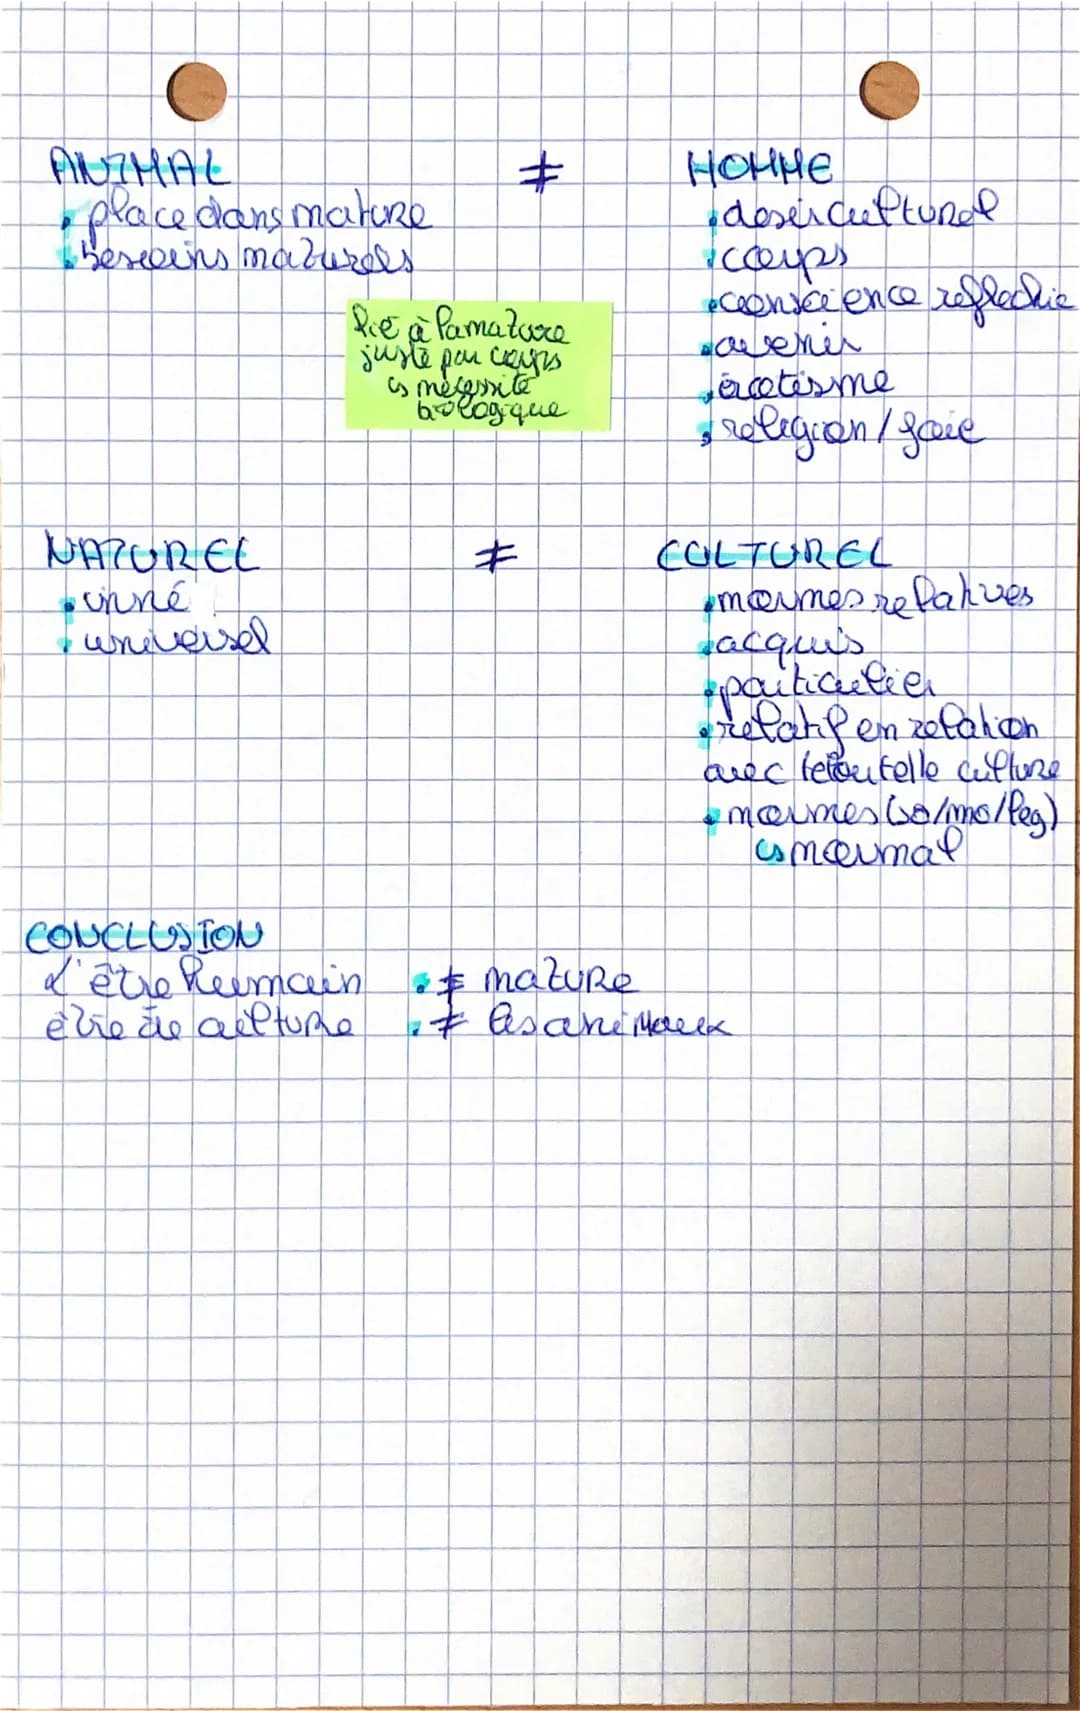 ANIMAL ≠ HOMME
• place dans nature
• besoins naturels
• désir culturel
• corps
• conscience reflechie
• avenir
• érotisme
• religion / foie
lié à la nature
juste par corps
↳ nécessité
biologique
NATUREL ≠ CULTUREL
• inné
• universel
• normes relatives
• acquis
• particulier
• relatif en relation
avec telle ou telle culture
• normes (so/mo/leg)
↳ normal
CONCLUSION
L'être humain • ≠ nature
être de culture • ≠ les animaux